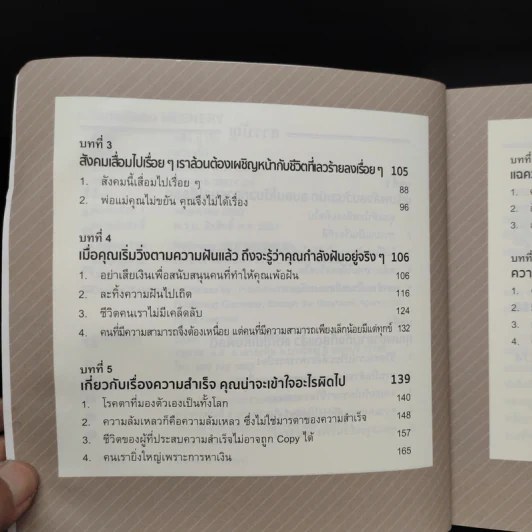 บทที่ 3
สังคมเสื่อมไปเรื่อย ๆ เราล้วนต้องเผชิญหน้ากับชีวิตที่เลวร้ายลงเรื่อย ๆ 105
1. สังคมนี้เสื่อมไปเรื่อย ๆ 88
2. พ่อแม่คุณไม่ขยัน คุณจึงไม่ได้เรื่อง 96
บทที่ 4
เมื่อคุณเริ่มวิ่งตามความฝันแล้ว ถึงจะรู้ว่าคุณกำลังฝันอยู่จริง ๆ 106
1. อย่าเสียเงินเพื่อสนับสนุนคนที่ทำให้คุณเพ้อฝัน 106
2. ละทิ้งความฝันไปเถิด 116
3. ชีวิตคนเราไม่มีเคล็ดลับ 124
4. คนที่มีความสามารถจึงต้องเหนื่อย แต่คนที่มีความสามารถเพียงเล็กน้อยมีแต่ทุกข์ 132
บทที่ 5
เกี่ยวกับเรื่องความสำเร็จ คุณน่าจะเข้าใจอะไรผิดไป 139
1. โรคตาที่มองตัวเองเป็นทั้งโลก 140
2. ความล้มเหลวก็คือความล้มเหลว ซึ่งไม่ใช่มารดาของความสำเร็จ 148
3. ชีวิตของผู้ที่ประสบความสำเร็จไม่อาจถูก Copy ได้ 157
4. คนเรายิ่งใหญ่เพราะการหาเงิน 165